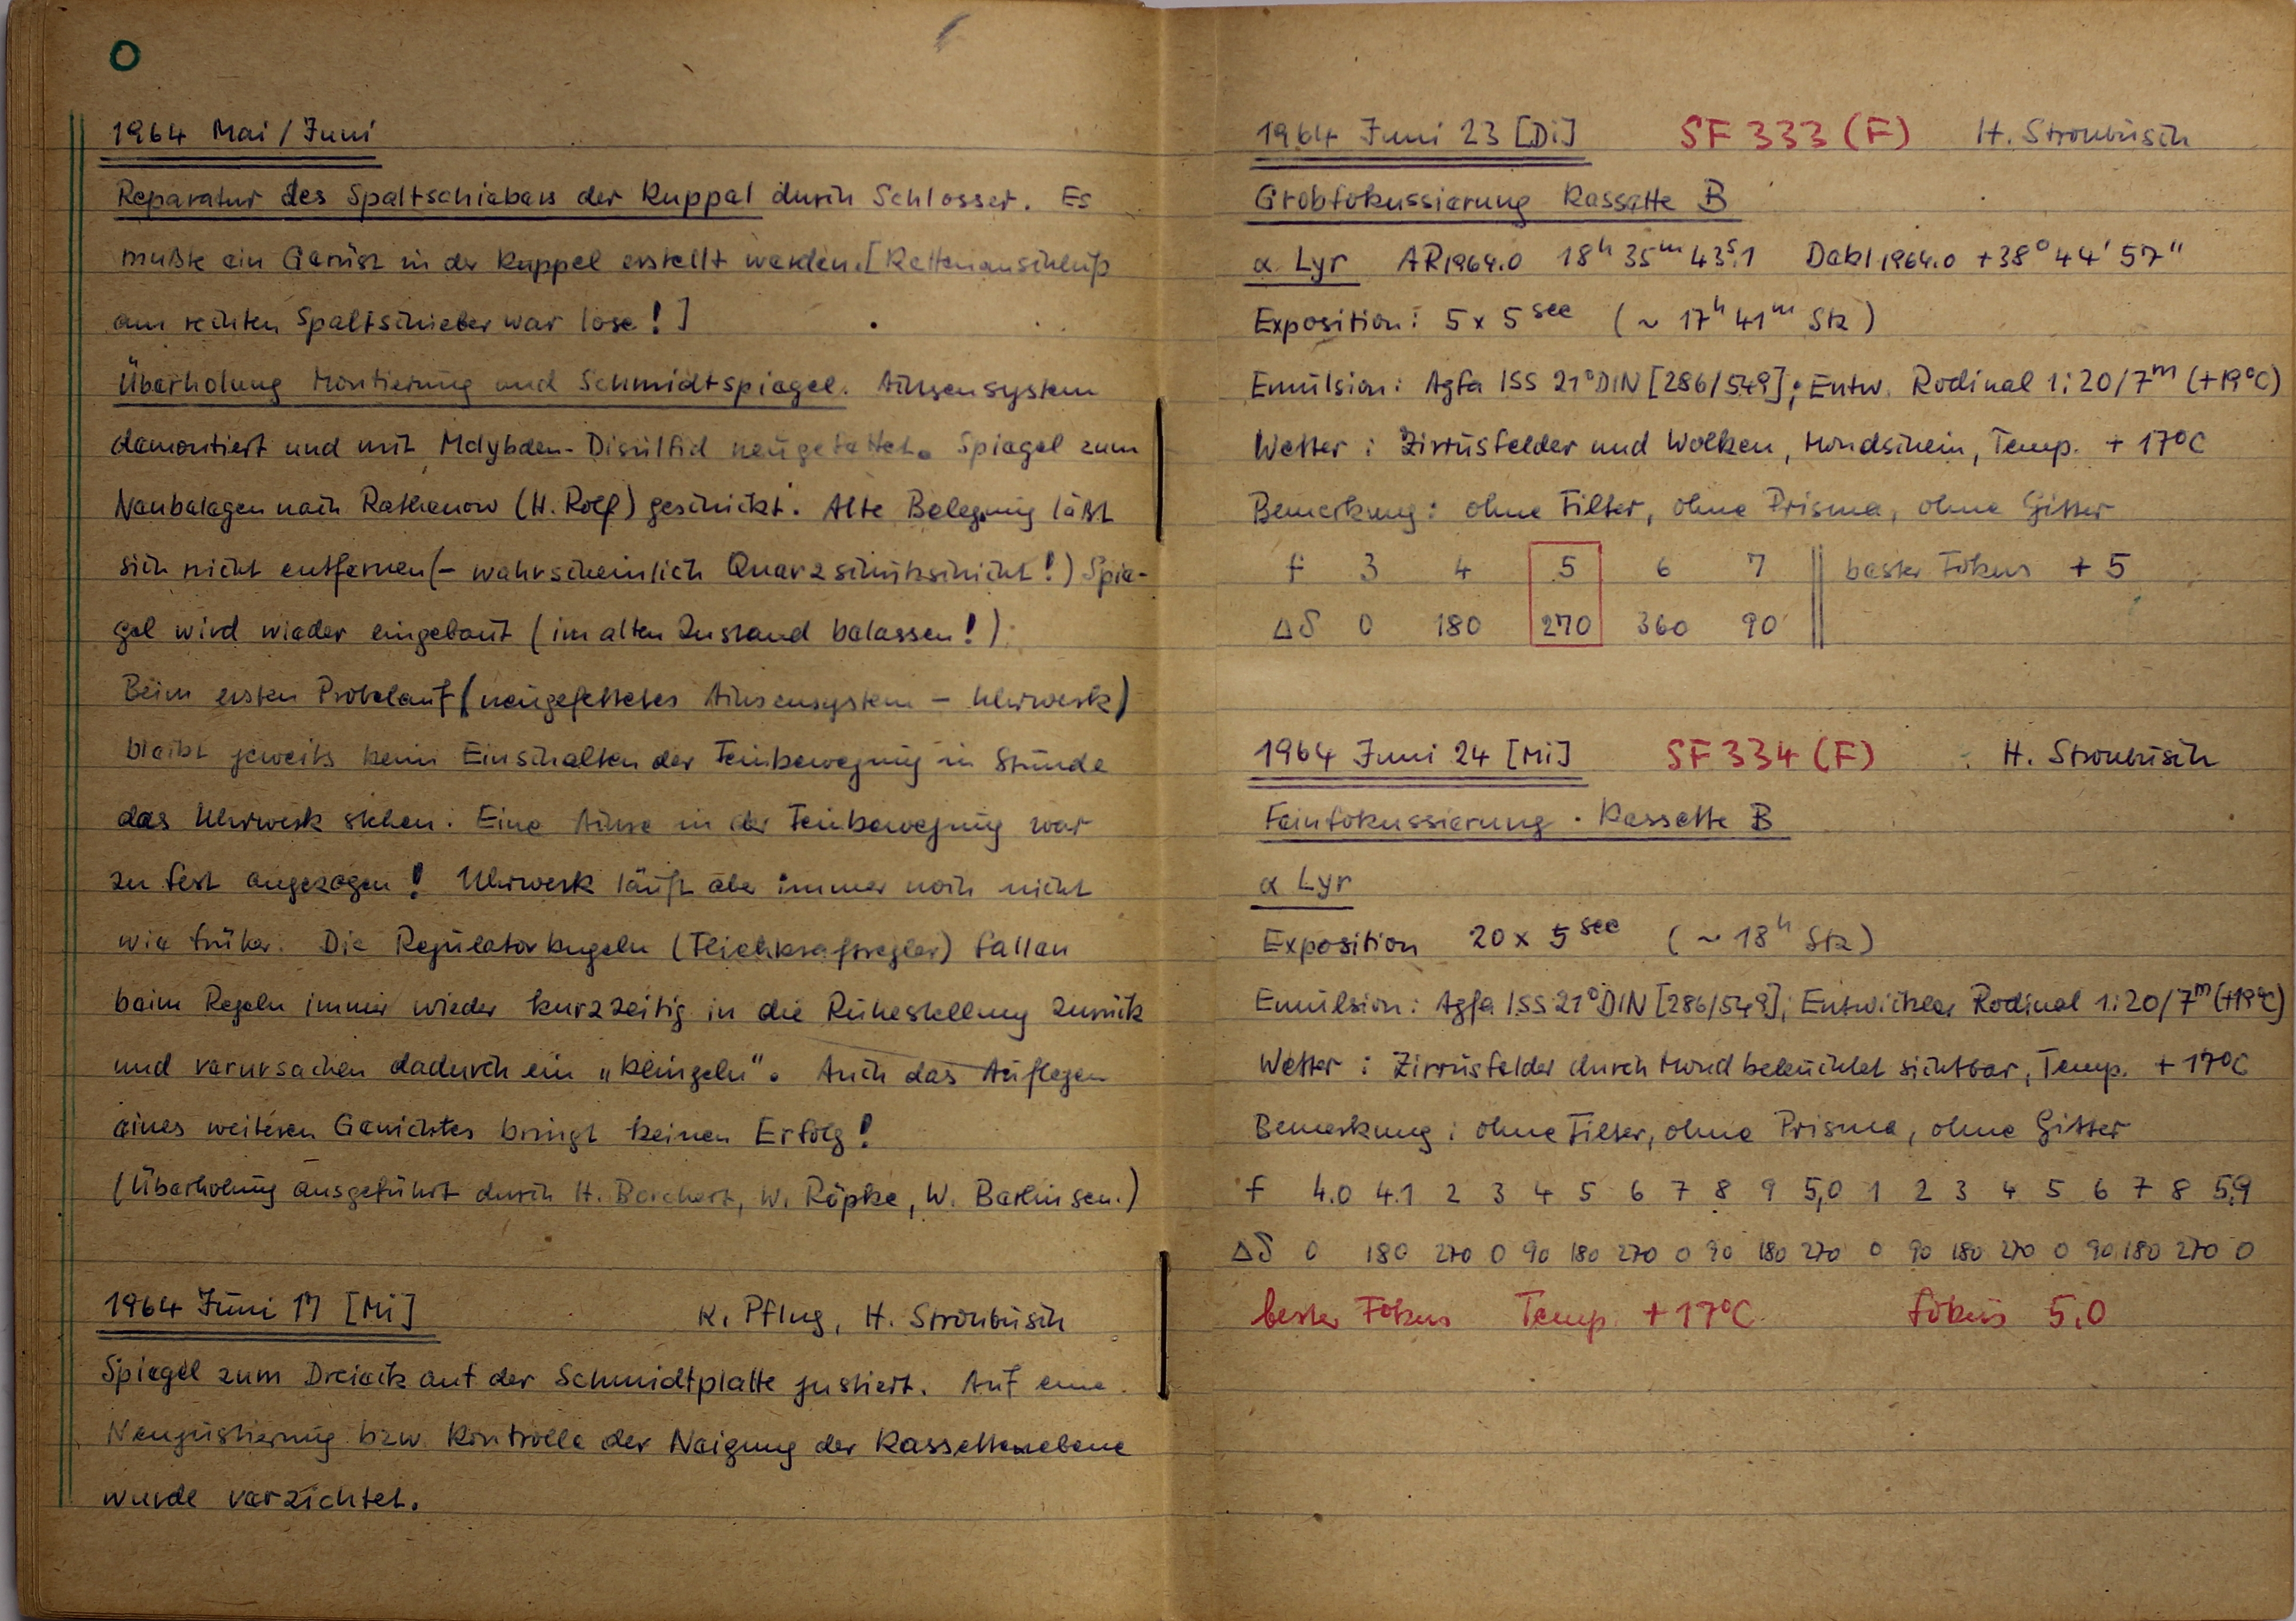 O
1964 Mai / Juni
Reparatur des Spaltschiebers der Kuppel durch Schlosser. Es
mußte ein Gerüst in der Kuppel erstellt werden. [Kettenanschluß
am rechten Spaltschieber war lose!]
Überholung Montierung und Schmidtspiegel. Achsensystem
demontiert und mit Molybden-Disulfid neugefettet. Spiegel zum
Neubelegen nach Rathenow (H. Rolf) geschickt. Alte Belegung läßt
sich nicht entfernen (– wahrscheinlich Quarzschutzschicht!) Spie-
gel wird wieder eingebaut (im alten Zustand belassen!).
Beim ersten Probelauf (neugefettetes Achsensystem – Uhrwerk)
bleibt jeweils beim Einschalten der Feinbewegung in Stunde
das Uhrwerk stehen. Eine Achse in der Feinbewegung war
zu fest angezogen! Uhrwerk läuft aber immer noch nicht
wie früher. Die Regulatorkugeln (Fliehkraftregler) fallen
beim Regeln immer wieder kurzzeitig in die Ruhestellung zurück
und verursachen dadurch ein „klingeln". Auch das Auflegen
eines weiteren Gewichtes bringt keinen Erfolg!
(Überholung ausgeführt durch H. Borchert, W. Röpke, W. Barlin sen.)
1964 Juni 17 [Mi] K. Pflug, H. Stronbusch
Spiegel zum Dreieck auf der Schmidtplatte justiert. Auf eine
Neujustierung bzw. Kontrolle der Neigung der Kassettenebene
wurde verzichtet.
1964 Juni 23 [Di] SF 333 (F) H. Stronbusch
Grobfokussierung Kassette B
α Lyr AR1964.0 18h 35m 43s.1 Dekl1964.0 +38° 44' 57"
Exposition: 5 x 5 sec (~ 17h 41m Stz)
Emulsion: Agfa ISS 21°DIN [286/549]; Entw. Rodinal 1:20/7m (+19°C)
Wetter: Zirrusfelder und Wolken, Mondschein, Temp. + 17°C
Bemerkung: ohne Filter, ohne Prisma, ohne Gitter
f 3 4 5 6 7 bester Fokus + 5
Δδ 0 180 270 360 90
1964 Juni 24 [Mi] SF 334 (F) H. Stronbusch
Feinfokussierung · Kassette B
α Lyr
Exposition 20 x 5 sec (~ 18h Stz)
Emulsion: Agfa ISS 21°DIN [286/549]; Entwickler Rodinal 1:20/7m (+19°C)
Wetter: Zirrusfelder durch Mond beleuchtet sichtbar, Temp. + 17°C
Bemerkung: ohne Filter, ohne Prisma, ohne Gitter
f 4.0 4.1 2 3 4 5 6 7 8 9 5,0 1 2 3 4 5 6 7 8 5,9
Δδ 0 180 270 0 90 180 270 0 90 180 270 0 90 180 270 0 90 180 270 0
bester Fokus Temp. + 17°C Fokus 5.0